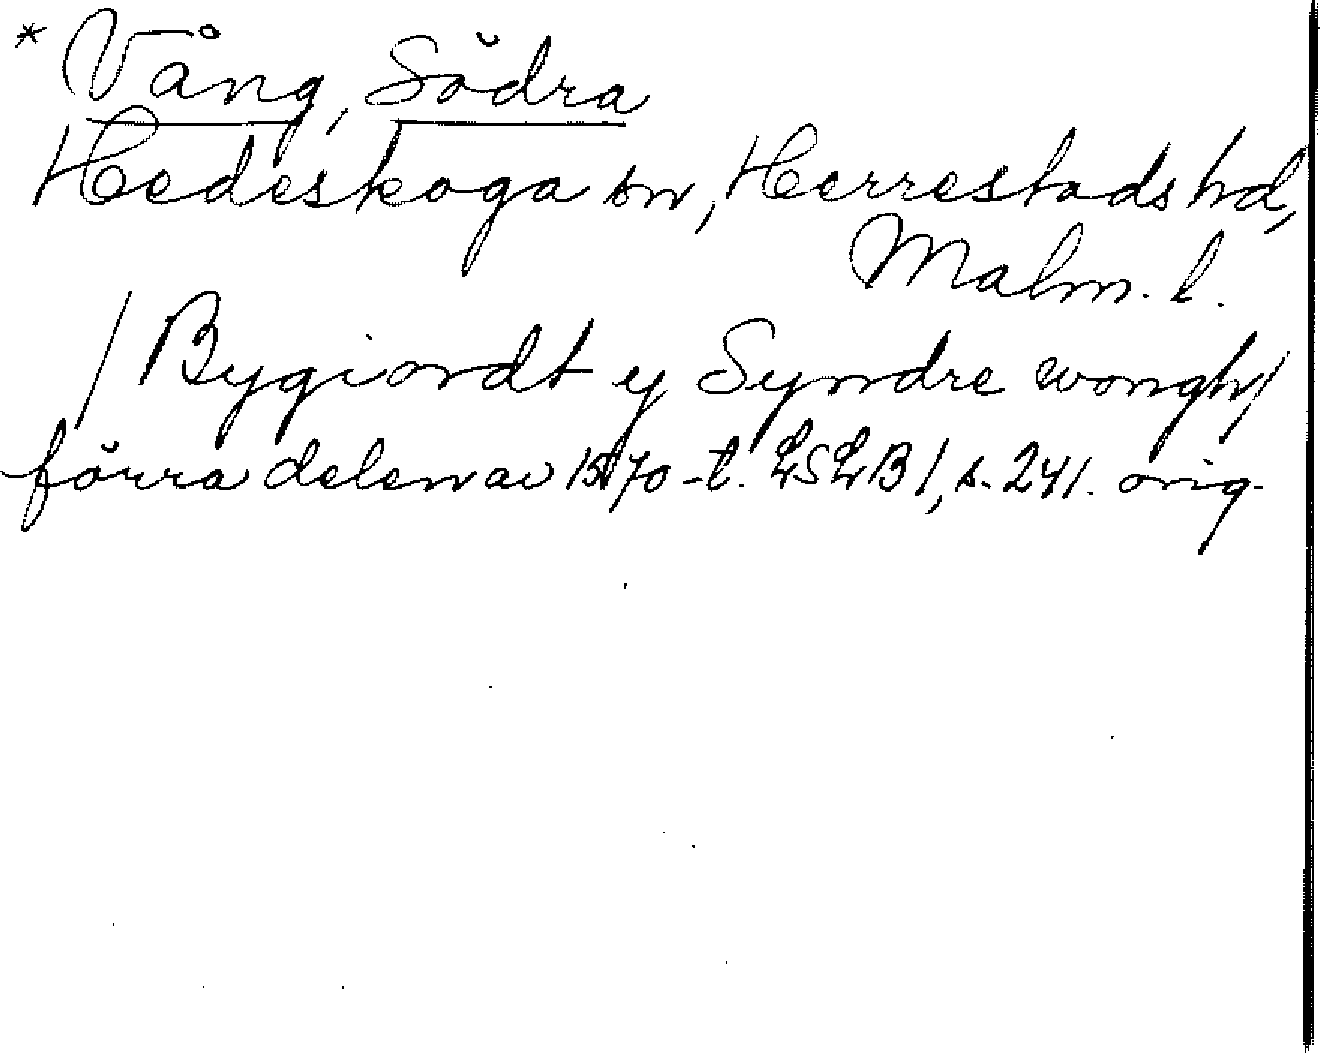 * Vång, Södra
Hedeskoga sn, Herrestads hd,
Malm. l.
/ Bygiordt y Syndre wongh/
förra delen av 1570-t. LSLB 1, s. 241. orig.